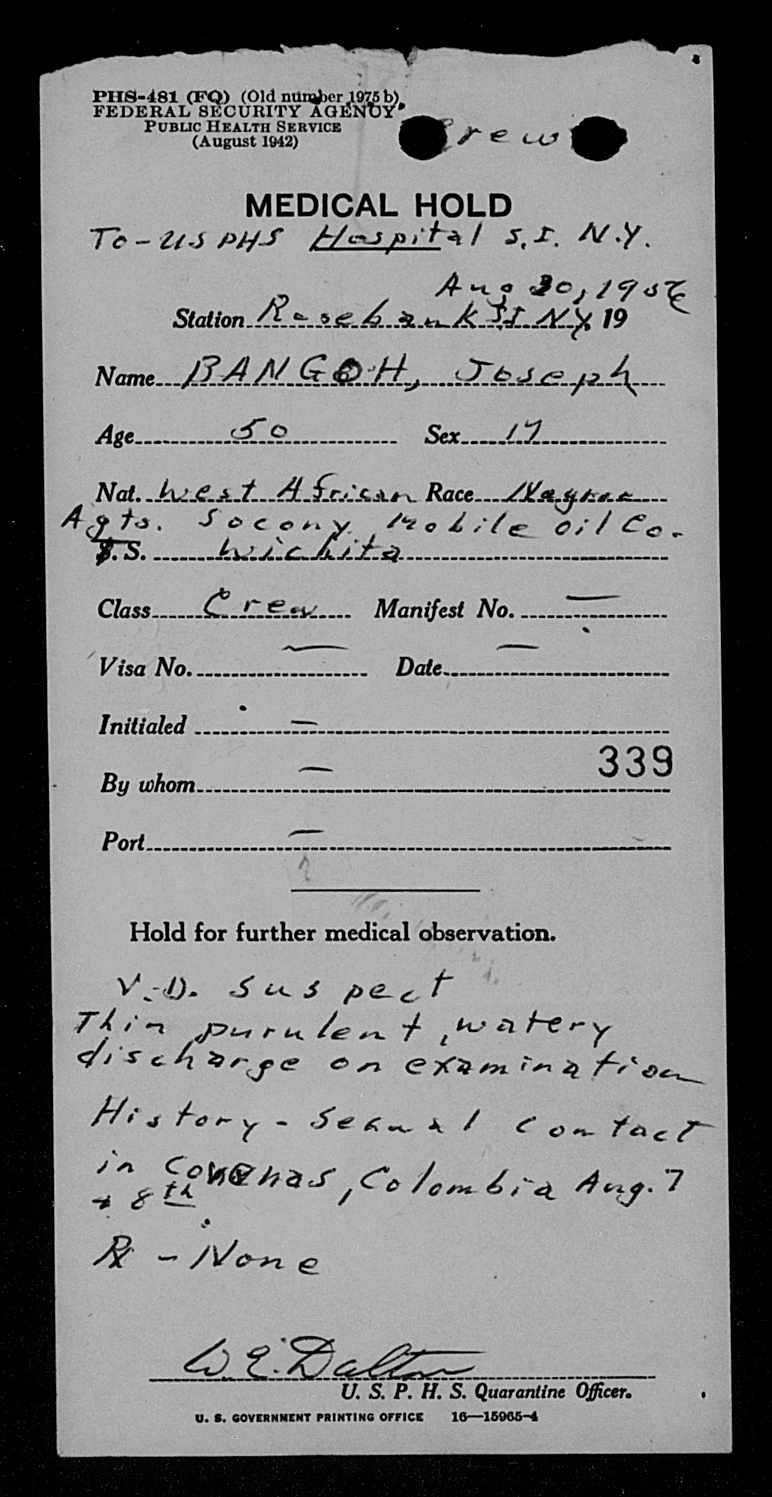 PHS-481 (FQ) (Old number 1975 b)
FEDERAL SECURITY AGENCY
PUBLIC HEALTH SERVICE
(August 1942)
Crew
MEDICAL HOLD
To - US PHS Hospital S.I. N.Y.
Aug 20, 1956
Station Rosebank S.I. N.Y. 19
Name BANGOH, Joseph
Age 50 Sex M
Nat. West African Race Negroe
Agts. Socony Mobile Oil Co.
S.S. Wichita
Class Crew Manifest No. —
Visa No. — Date —
Initialed —
By whom — 339
Port —
Hold for further medical observation.
V.D. suspect
Thin purulent, watery
discharge on examination
History - Sexual contact
in Covenas, Colombia Aug. 7
+ 8th
Rx - None
W.E. Dalton
U. S. P. H. S. Quarantine Officer.
U. S. GOVERNMENT PRINTING OFFICE 16—15965-4